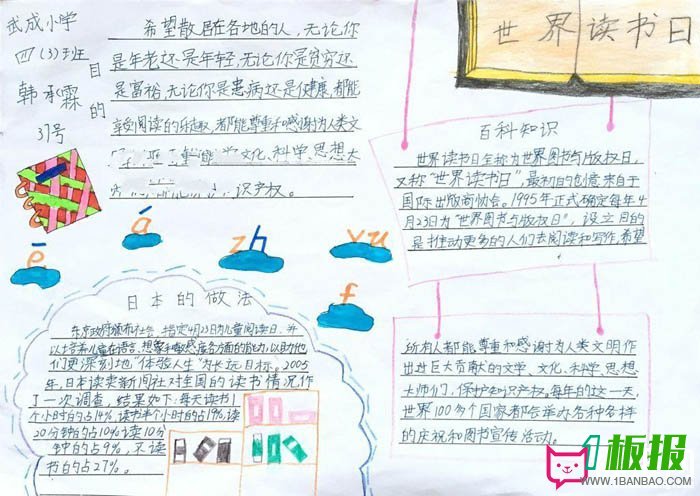 武成小学
四(3)班
韩承霖
37号
目的
希望散居在各地的人，无论你
是年老还是年轻，无论你是贫穷还
是富裕，无论你是患病还是健康，都能
享受阅读的乐趣，都能尊重和感谢为人类文
文化、科学、思想大
识产权。
世界读书日
百科知识
世界读书日全称为世界图书与版权日，
又称“世界读书日”，最初的创意来自于
国际出版商协会。1995年正式确定每年4
月23日为“世界图书与版权日”，设立目的
是推动更多的人们去阅读和写作，希望
所有人都能尊重和感谢为人类文明作
出过巨大贡献的文学、文化、科学、思想
大师们，保护知识产权。每年的这一天，
世界100多个国家都会举办各种各样
的庆祝和图书宣传活动。
ē
á
zh
yu
f
日本的做法
东京政府颁布社会，指定4月23日为儿童阅读日，并
以培养儿童在语言、想象和敏感度各方面的能力，以助他
们更深刻地“体验人生”为长远目标。2005
年，日本读卖新闻社对全国的读书情况作
了一次调查，结果如下：每天读书1
个小时的占14%，读书半个小时的占19%，读
20分钟的占10%，读10分
钟的占9%，不读
书的占27%。
1板报
WWW.1BANBAO.COM